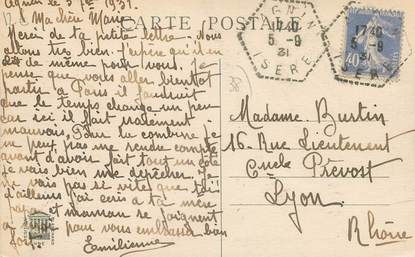 Agnin le 5 7bre 1931.
CARTE POSTALE
Ma chère Mame
Merci de ta petite lettre. Nous
allons très bien. J'espère qu'il en
est de même pour vous. Je
pense que vous allez bientôt
partir à Paris il faudrait
que le temps change un peu
car ici il fait salement
mauvais. Pour la combine je
ne peux pas me rendre compte
avant d'avoir fait tout un côté
Je vais bien me dépêcher. Je
ne vais pas si vite que toi
d'ailleurs j'ai écris à ta mère
papa et maman se joignent
à moi pour vous embrasser bien
fort. Emilienne
AGNIN
1740
5-9
31
ISERE
1740
5-9
31
ISERE
40
Madame Burtin
16 Rue Lieutenant
Cnele Prévost
Lyon
Rhône